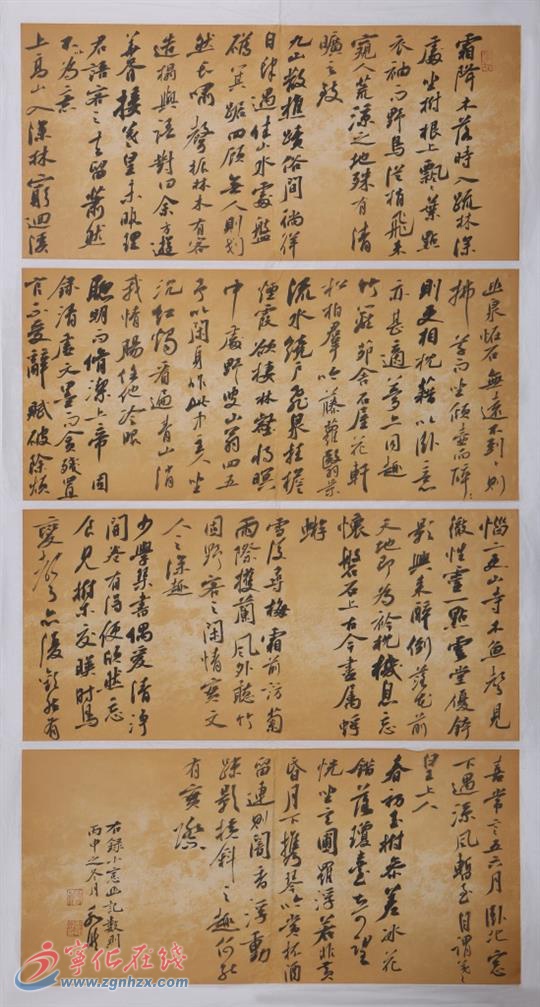 霜降木落時入疏林深
處坐樹根上飄〻葉點
衣袖而野鳥從梢飛來
窺人荒涼之地殊有清
曠之致
九山散樵蹟俗間徜徉
自肆遇佳山水處盤
礴箕踞四顧無人則划
然長嘯聲振林木有客
造榻與語對曰余方遊
華胥接羲皇未暇理
君語客之去留蕭然
不為意
上高山入深林窮迴溪
幽泉怪石無遠不到〻則
拂草而坐傾壺而醉〻
則更相枕藉以臥意
亦甚適夢亦同趣
竹籬茆舍石屋花軒
松柏群吟藤蘿翳景
流水繞戶飛泉挂檐
煙霞欲棲林壑將暝
中處野叟山翁四五
予以閒身作此中主人坐
沉紅燭看遍青山消
我情腸任他冷眼
聰明而修潔上帝固
錄清虛文墨而貪殘冥
官不受辭賦破除煩
惱二更山寺木魚聲見
澈性靈一點雲堂優缽
影興來醉倒落花前
天地即為衾枕機息忘
懷磐石上古今盡屬蜉
蝣
雪後尋梅霜前訪菊
雨際護蘭風外聽竹
固野客之閒情實文
人之深趣
少學琴書偶愛清淨
開卷有得便欣然忘
食見樹木交映時鳥
變聲亦復歡然有
喜常言五六月臥北窗
下遇涼風暫至自謂羲
皇上人
春初玉樹參差冰花
錯落瓊臺奇望
恍坐玄圃羅浮若非黃
昏月下攜琴吟賞杯酒
留連則暗香浮動
疏影橫斜之趣何能
有實際
右錄小窗幽記數則
丙申之冬月
寧化在线
www.zgnhzx.com